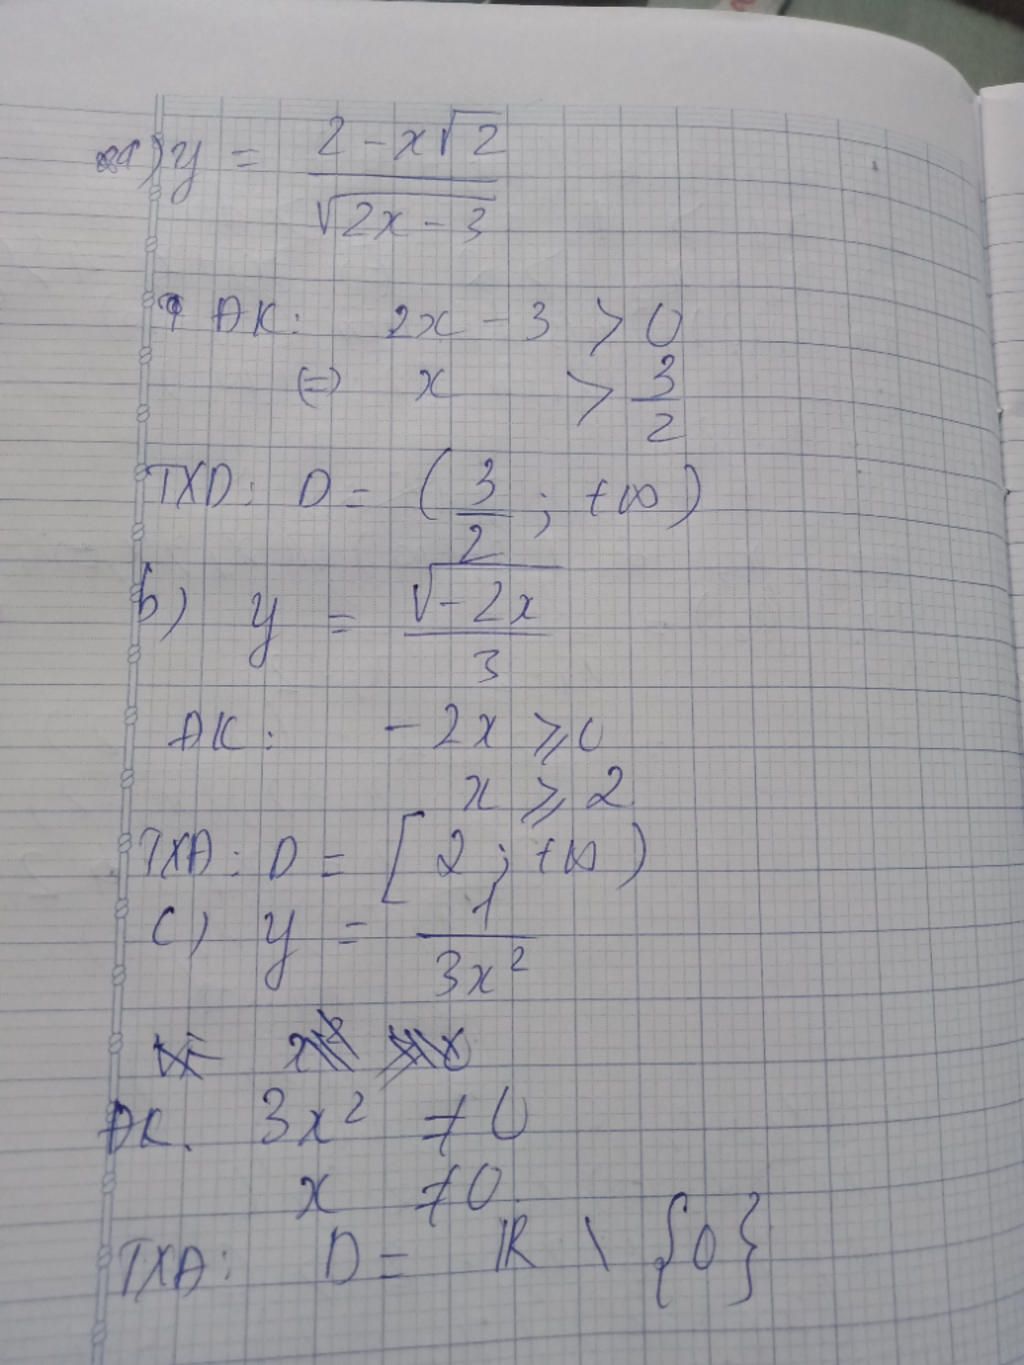 a) y = \frac{2 - x\sqrt{2}}{\sqrt{2x - 3}}
ĐK: 2x - 3 > 0
⇔ x > \frac{3}{2}
TXD: D = (\frac{3}{2}; +∞)
b) y = \frac{\sqrt{-2x}}{3}
ĐK: -2x ⩾ 0
x ⩾ 2
TXĐ: D = [2; +∞)
c) y = \frac{1}{3x^2}
ĐK. 3x^2 ≠ 0
x ≠ 0.
TXĐ: D = ℝ \ {0}